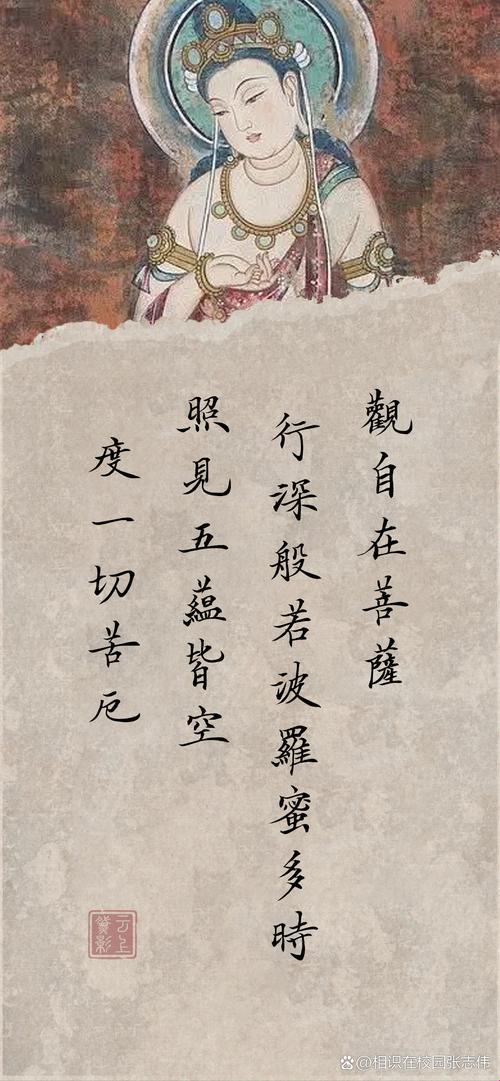 觀自在菩薩
行深般若波羅蜜多時
照見五蘊皆空
度一切苦厄
云上
影
@相识在校园张志伟